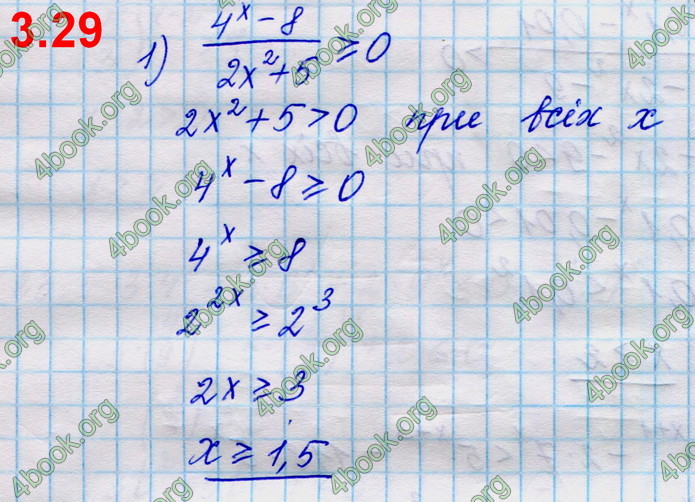 3.29
1) (4^x - 8)/(2x² + 5) ≥ 0
2x² + 5 > 0 при всіх x
4^x - 8 ≥ 0
4^x ≥ 8
2^{2x} ≥ 2³
2x ≥ 3
x ≥ 1,5
4book.org
4book.org
4book.org
4book.org
4book.org
4book.org
4book.org
4book.org
4book.org
4book.org
4book.org
4book.org